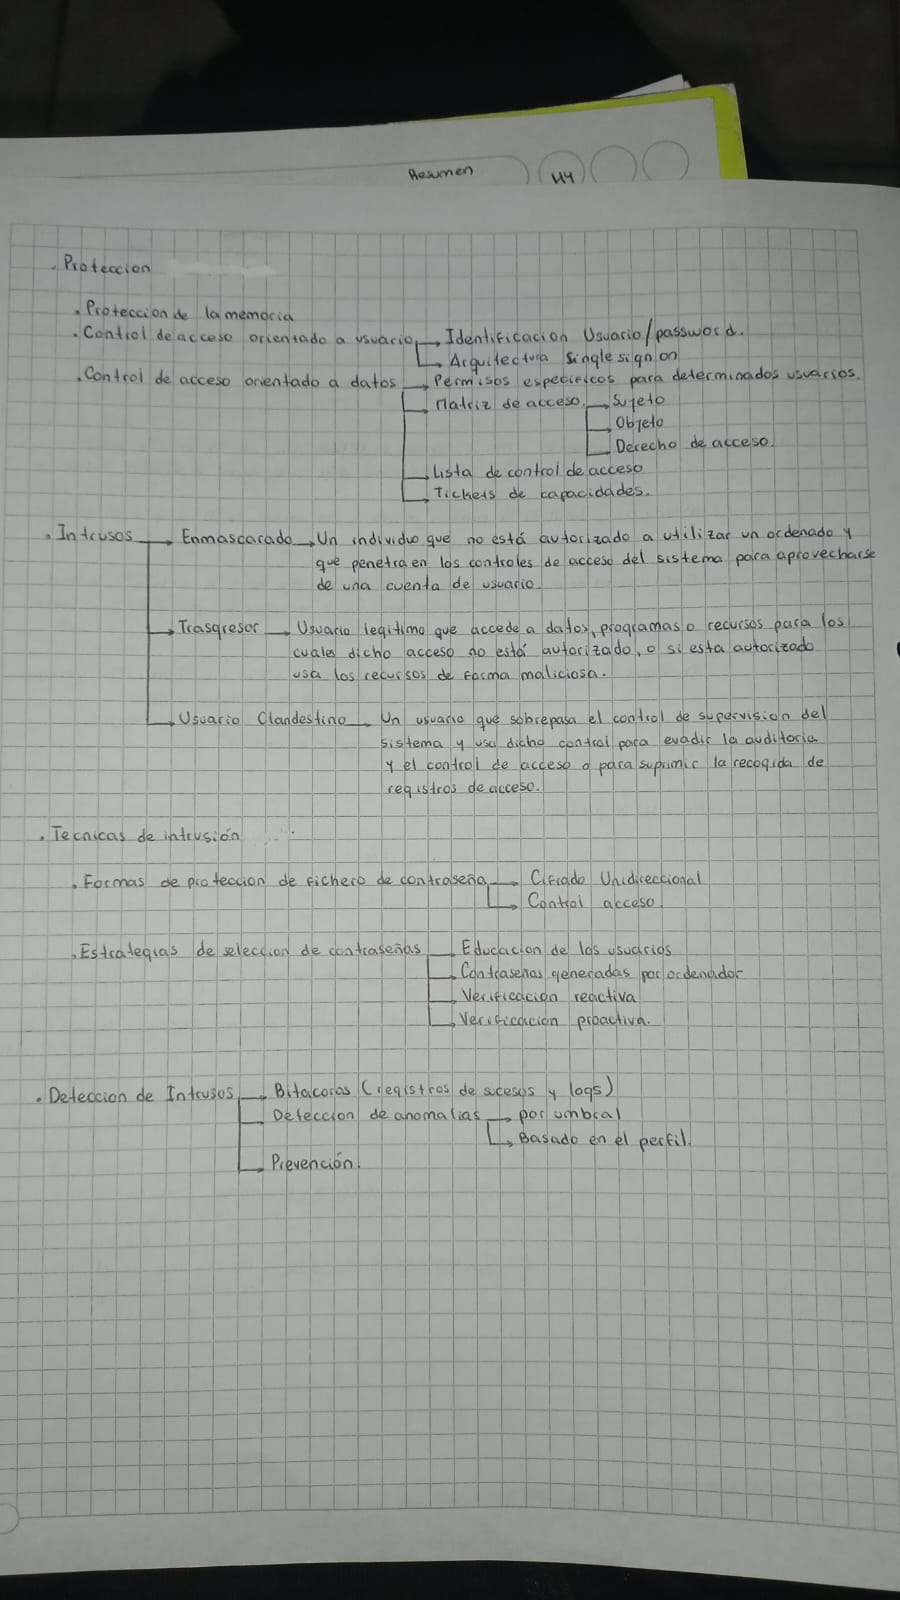 Resumen
44
. Proteccion
. Proteccion de la memoria
. Control de acceso orientado a usuario → Identificacion Usuario/password.
→ Arquitectura Single sign on
. Control de acceso orientado a datos → Permisos especificos para determinados usuarios.
→ Matriz de acceso. → Sujeto
→ Objeto
→ Derecho de acceso.
→ Lista de control de acceso
→ Tickets de capacidades.
. Intrusos → Enmascarado → Un individuo que no está autorizado a utilizar un ordenado y
que penetra en los controles de acceso del sistema para aprovecharse
de una cuenta de usuario.
→ Trasgresor → Usuario legitimo que accede a datos, programas o recursos para los
cuales dicho acceso no está autorizado, o si esta autorizado
usa los recursos de forma maliciosa.
→ Usuario Clandestino → Un usuario que sobrepasa el control de supervision del
sistema y usa dicho control para evadir la auditoria
y el control de acceso o para suprimir la recogida de
registros de acceso.
. Tecnicas de intrusión
. Formas de proteccion de fichero de contraseña → Cifrado Unidireccional
→ Control acceso.
. Estrategias de seleccion de contraseñas → Educacion de los usuarios
→ Contraseñas generadas por ordenador
→ Verificacion reactiva
→ Verificacion proactiva.
. Deteccion de Intrusos → Bitacoras (registros de sucesos y logs)
→ Deteccion de anomalias → por umbral
→ Basado en el perfil.
→ Prevención.